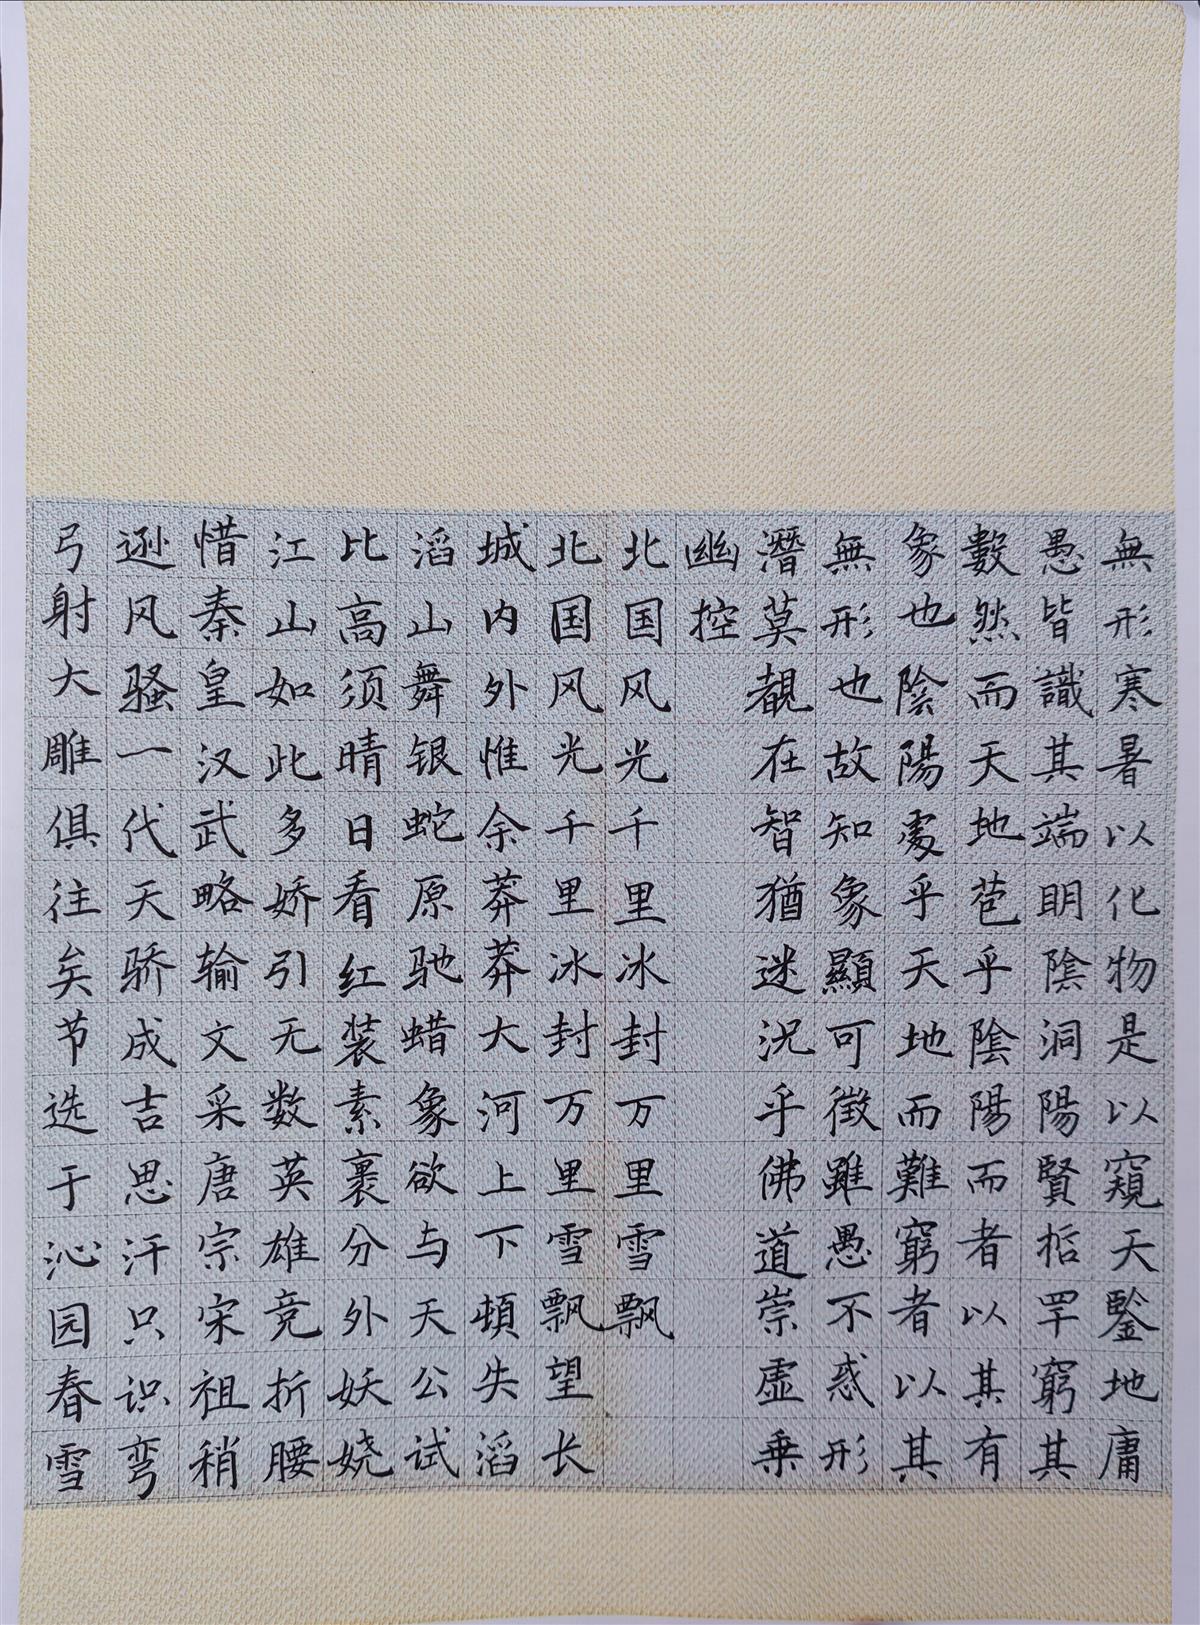 無形寒暑以化物是以窺天鑒地庸
愚皆識其端明陰洞陽賢哲罕窮其
數然而天地苞乎陰陽而者以其有
象也陰陽處乎天地而難窮者以其
無形也故知象顯可徵雖愚不惑形
潛莫覩在智猶迷況乎佛道崇虛乗
幽控
北国风光千里冰封万里雪飘
北国风光千里冰封万里雪飘望长
城内外惟余莽莽大河上下頓失滔
滔山舞银蛇原驰蜡象欲与天公试
比高须晴日看红装素裹分外妖娆
江山如此多娇引无数英雄竞折腰
惜秦皇汉武略输文采唐宗宋祖稍
逊风骚一代天骄成吉思汗只识弯
弓射大雕俱往矣节选于沁园春雪